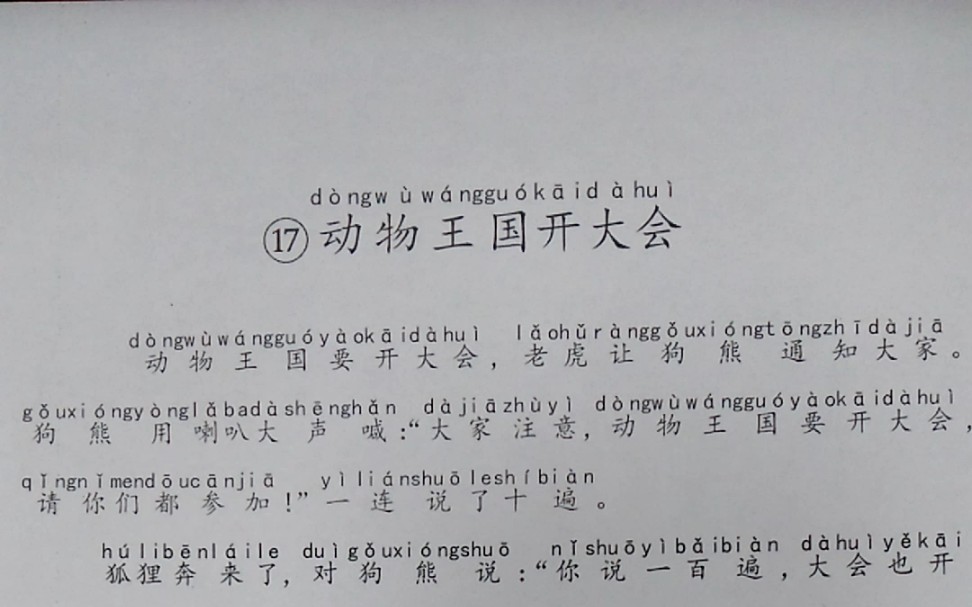 dòngwùwángguókāidàhuì
⑰动物王国开大会
dòngwùwángguóyàokāidàhuì lǎohǔrànggǒuxióngtōngzhīdàjiā
动物王国要开大会，老虎让狗熊通知大家。
gǒuxióngyònglǎbadàshēnghǎn dàjiāzhùyì dòngwùwángguóyàokāidàhuì
狗熊用喇叭大声喊：“大家注意，动物王国要开大会，
qǐngnǐmendōucānjiā yìliánshuōleshíbiàn
请你们都参加！”一连说了十遍。
húlibēnláile duìgǒuxióngshuō nǐshuōyìbǎibiàn dàhuìyěkāi
狐狸奔来了，对狗熊说：“你说一百遍，大会也开